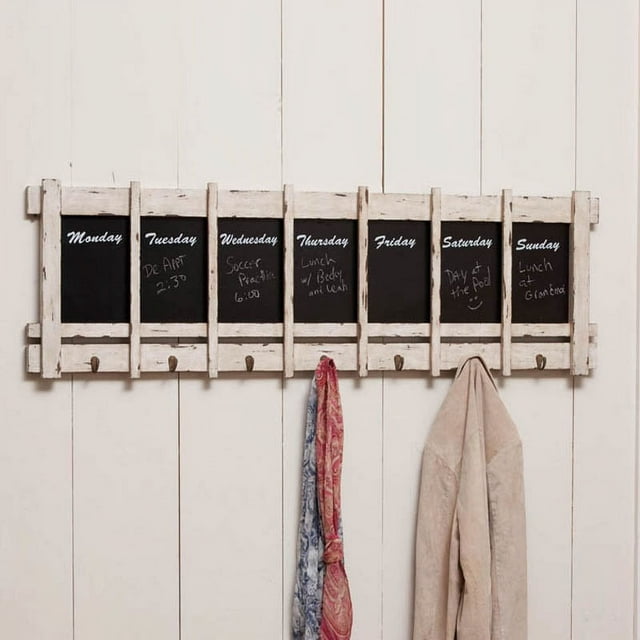 Monday
Tuesday
DR APPT
2:30
Wednesday
Soccer
Practice
6:00
Thursday
Lunch
w/ Becky
and Leah
Friday
Saturday
DAY at
the Pool
Sunday
Lunch
at
Grandma